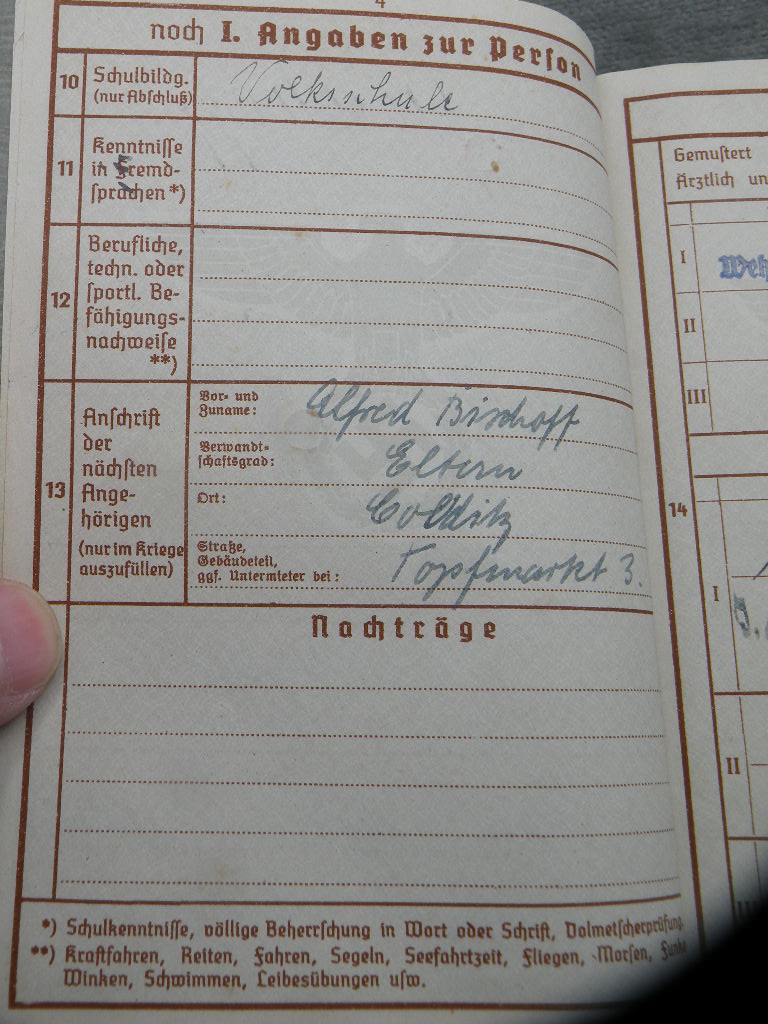 4
noch I. Angaben zur Person
10 Schulbildg. (nur Abschluß) Volksschule
11 Kenntnisse
in Fremd-
sprachen *)
Berufliche,
techn. oder
12 sportl. Be-
fähigungs-
nachweise
**)
13 Anschrift
der
nächsten
Ange-
hörigen
(nur im Kriege
auszufüllen)
Vor- und
Zuname: Alfred Bischoff
Verwandt-
schaftsgrad: Eltern
Ort: Colditz
Straße,
Gebäudeteil,
ggf. Untermieter bei: Topfmarkt 3.
Nachträge
*) Schulkenntnisse, völlige Beherrschung in Wort oder Schrift, Dolmetscherprüfung.
**) Kraftfahren, Reiten, Fahren, Segeln, Seefahrtzeit, Fliegen, Morsen, Funke
Winken, Schwimmen, Leibesübungen usw.
Gemustert
Ärztlich un
I Weh
II
III
14
I
II